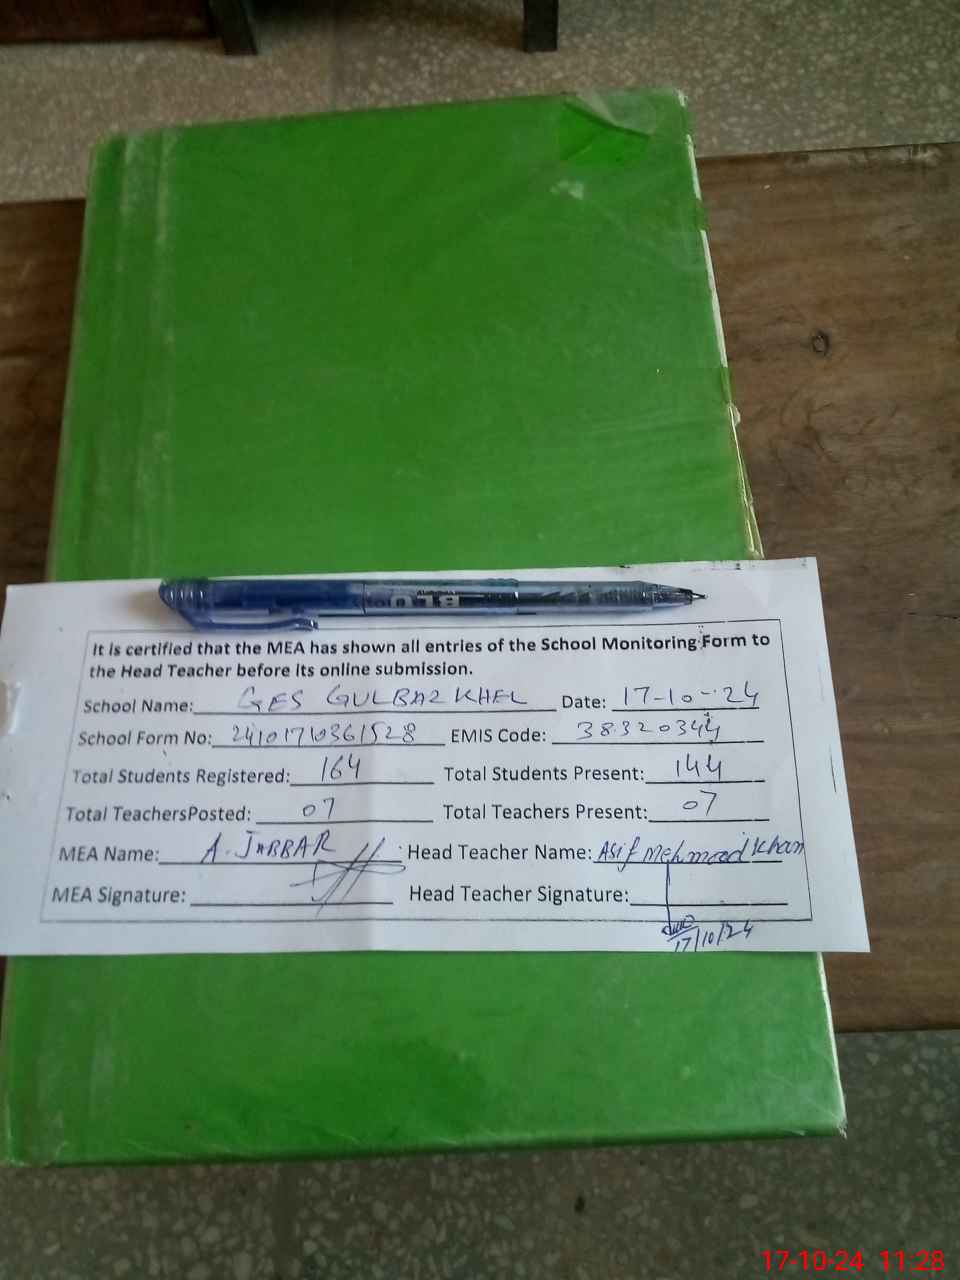 It is certified that the MEA has shown all entries of the School Monitoring Form to
the Head Teacher before its online submission.
School Name: GES GULBAZ KHEL Date: 17-10-24
School Form No: 24101710361528 EMIS Code: 38320344
Total Students Registered: 164 Total Students Present: 144
Total TeachersPosted: 07 Total Teachers Present: 07
MEA Name: A. JABBAR Head Teacher Name: Asif Mehmood Khan
MEA Signature: Head Teacher Signature:
17/10/24
17-10-24 11:28